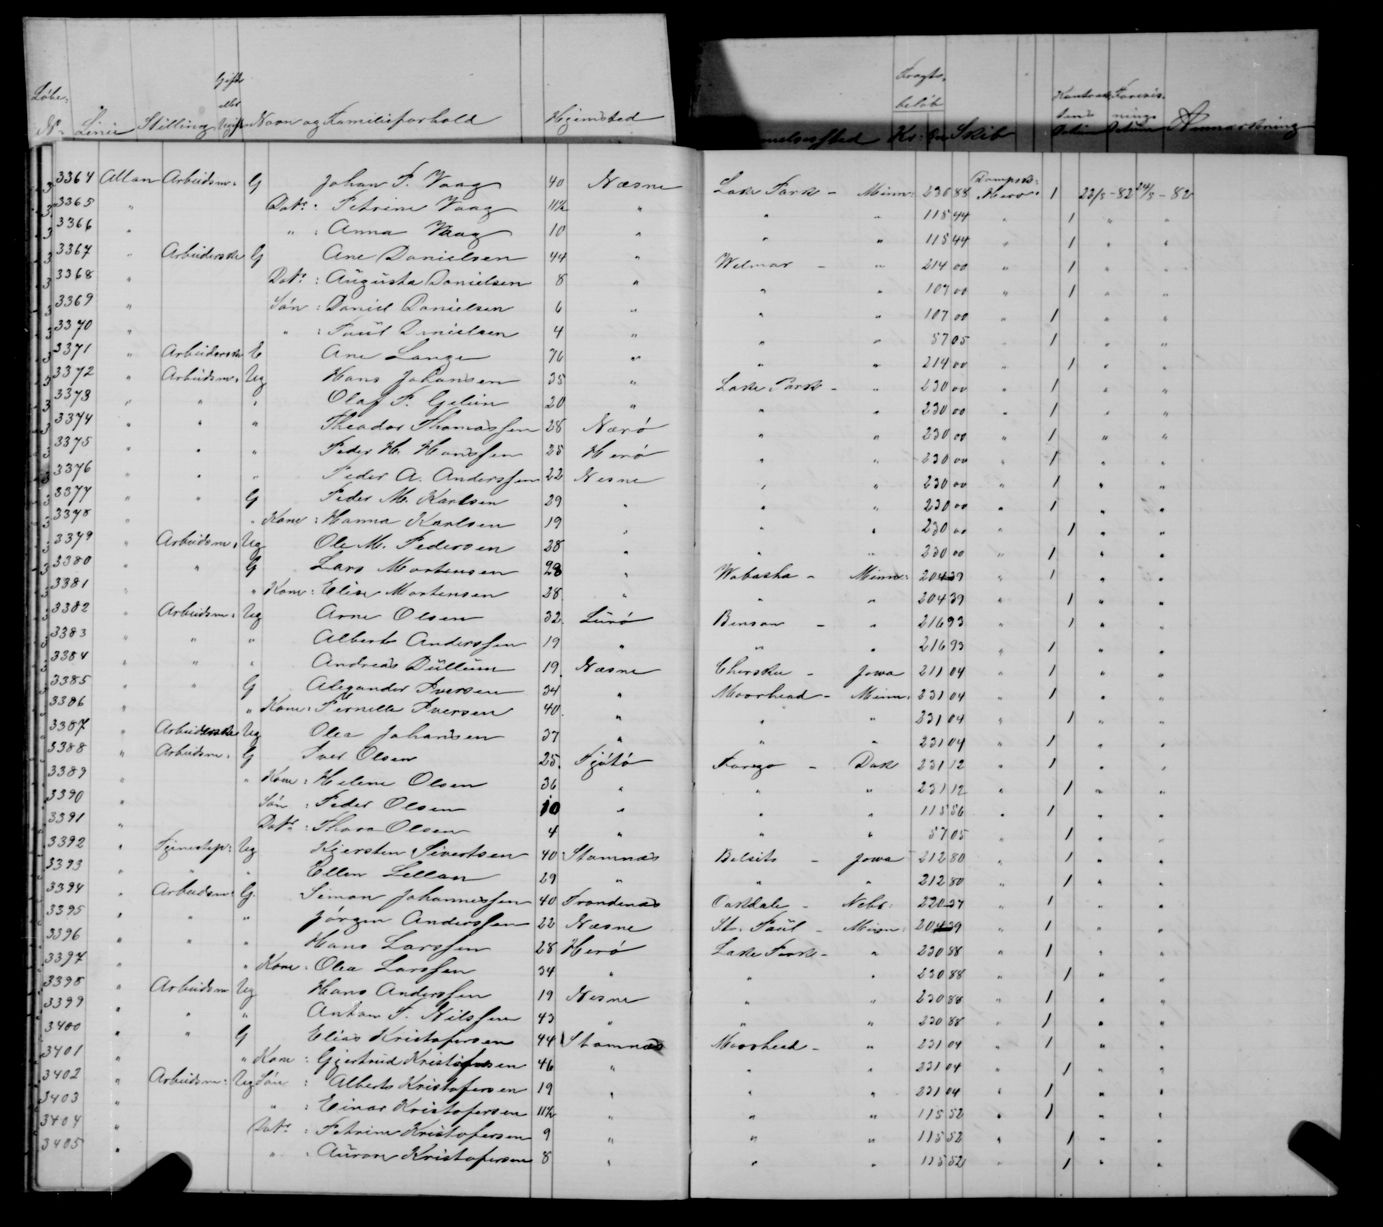 Løbe- Gift Fragt- Kontrak- Forevis-
eller beløb tens nings
No Linie Stilling Ugift Navn og Familieforhold Hjemsted melsessted Kr. Ør Skib Datum Datum Anmærkning
3364 Allan Arbeidsm. G Johan P. Vaag 40 Næsne Lake Park - Minn: 230 88 Dampsk. Hero 1 22/5 - 82 24/5 - 82
3365 " Dat: Petrine Vaag 11½ " " " 115 44 " 1 " "
3366 " " : Anna Vaag 10 " " " 115 44 " 1 " "
3367 " Arbeiderske G Ane Danielsen 44 " Wilmar - " 214 00 " 1 " "
3368 " Dat: : Augusta Danielsen 8 " " " 107 00 " 1 " "
3369 " Søn : Daniel Danielsen 6 " " " 107 00 " 1 " "
3370 " " : Paul Danielsen 4 " " " 57 05 " 1 " "
3371 " Arbeiderske E Ane Lange 76 " " " 214 00 1 " "
3372 " Arbeidsm. Ug Hans Johansen 35 " Lake Park - " 230 00 " 1 " "
3373 " " " Olaf P. 20 " " " 230 00 " 1 " "
3374 " " " Theodor Thomassen 28 Nærø " " 230 00 " 1 " "
3375 " " " Peder H. Hansen 25 Herø " " 230 00 " 1 " "
3376 " " " Peder A. Anderssen 22 Nesne " " 230 00 " 1 " "
3377 " " G Peder M. Karlsen 29 " " " 230 00 " 1 " "
3378 " " Kone : Hanna Karlsen 19 " " " 230 00 " 1 " "
3379 " Arbeidsm. Ug Ole M. Pedersen 28 " " " 230 00 " 1 " "
3380 " " G Lars Mortensen 28 " Wabasha - Minn: 204 39 " 1 " "
3381 " " Kone : Elise Mortensen 28 " " " 204 39 1 " "
3382 " Arbeidsm. Ug Arne Olsen 32 Lurø Benson - " 216 93 1 " "
3383 " " " Albert Anderssen 19 " " " 216 93 " 1 " "
3384 " " " Andreas 19 Næsne - Jowa 211 04 " 1 " "
3385 " " G Alexander Iversen 34 " Moorhead - Minn: 231 04 " 1 " "
3386 " " Kone : Pernelle Iversen 40 " " " 231 04 1 " "
3387 " Arbeiderske Ug Olea Johansen 37 " " " 231 04 " 1 " "
3388 " Arbeidsm. G Iver Olsen 25 Tjøtø Fargo - Dak 231 12 " 1 " "
3389 " " Kone : Helene Olsen 36 " " " 231 12 " 1 " "
3390 " Søn : Peder Olsen 10 " " " 115 56 " 1 " "
3391 " Dat: Thora Olsen 4 " " " 57 05 1 " "
3392 " Tjenestep: Ug Kjersten Sivertsen 40 Stamnæs - Jowa 212 80 " 1 " "
3393 " " " Ellen 29 " " " 212 80 1 " "
3394 " Arbeidsm. G. Simon Johannessen 40 Trondenæs Oakdale - Nebr. 220 37 " 1 " "
3395 " " " Jørgen Anderssen 22 Næsne St. Paul - Minn. 204 39 " 1 " "
3396 " " " Hans Larssen 28 Herø Lake Park - " 230 88 " 1 " "
3397 " " Kone : Olea Larssen 34 " " " 230 88 1 " "
3398 " Arbeidsm Ug Hans Anderssen 19 Nesne " " 230 88 " 1 " "
3399 " " " Anton P. Nilssen 43 " " " 230 88 " 1 " "
3400 " " G Elias Kristofersen 44 Stamnæs Moorhead - " 231 04 " 1 " "
3401 " " Kone : Gjertrud Kristofersen 46 " " " 231 04 1 " "
3402 " Arbeidsm. Ug Søn : Albert Kristofersen 19 " " " 231 04 " 1 " "
3403 " " : Einar Kristofersen 11½ " " " 115 52 " 1 " "
3404 " Dat: : Petrine Kristofersen 9 " " " 115 52 " 1 " "
3405 " " : Aurora Kristofersen 8 " " " 115 52 " 1 " "